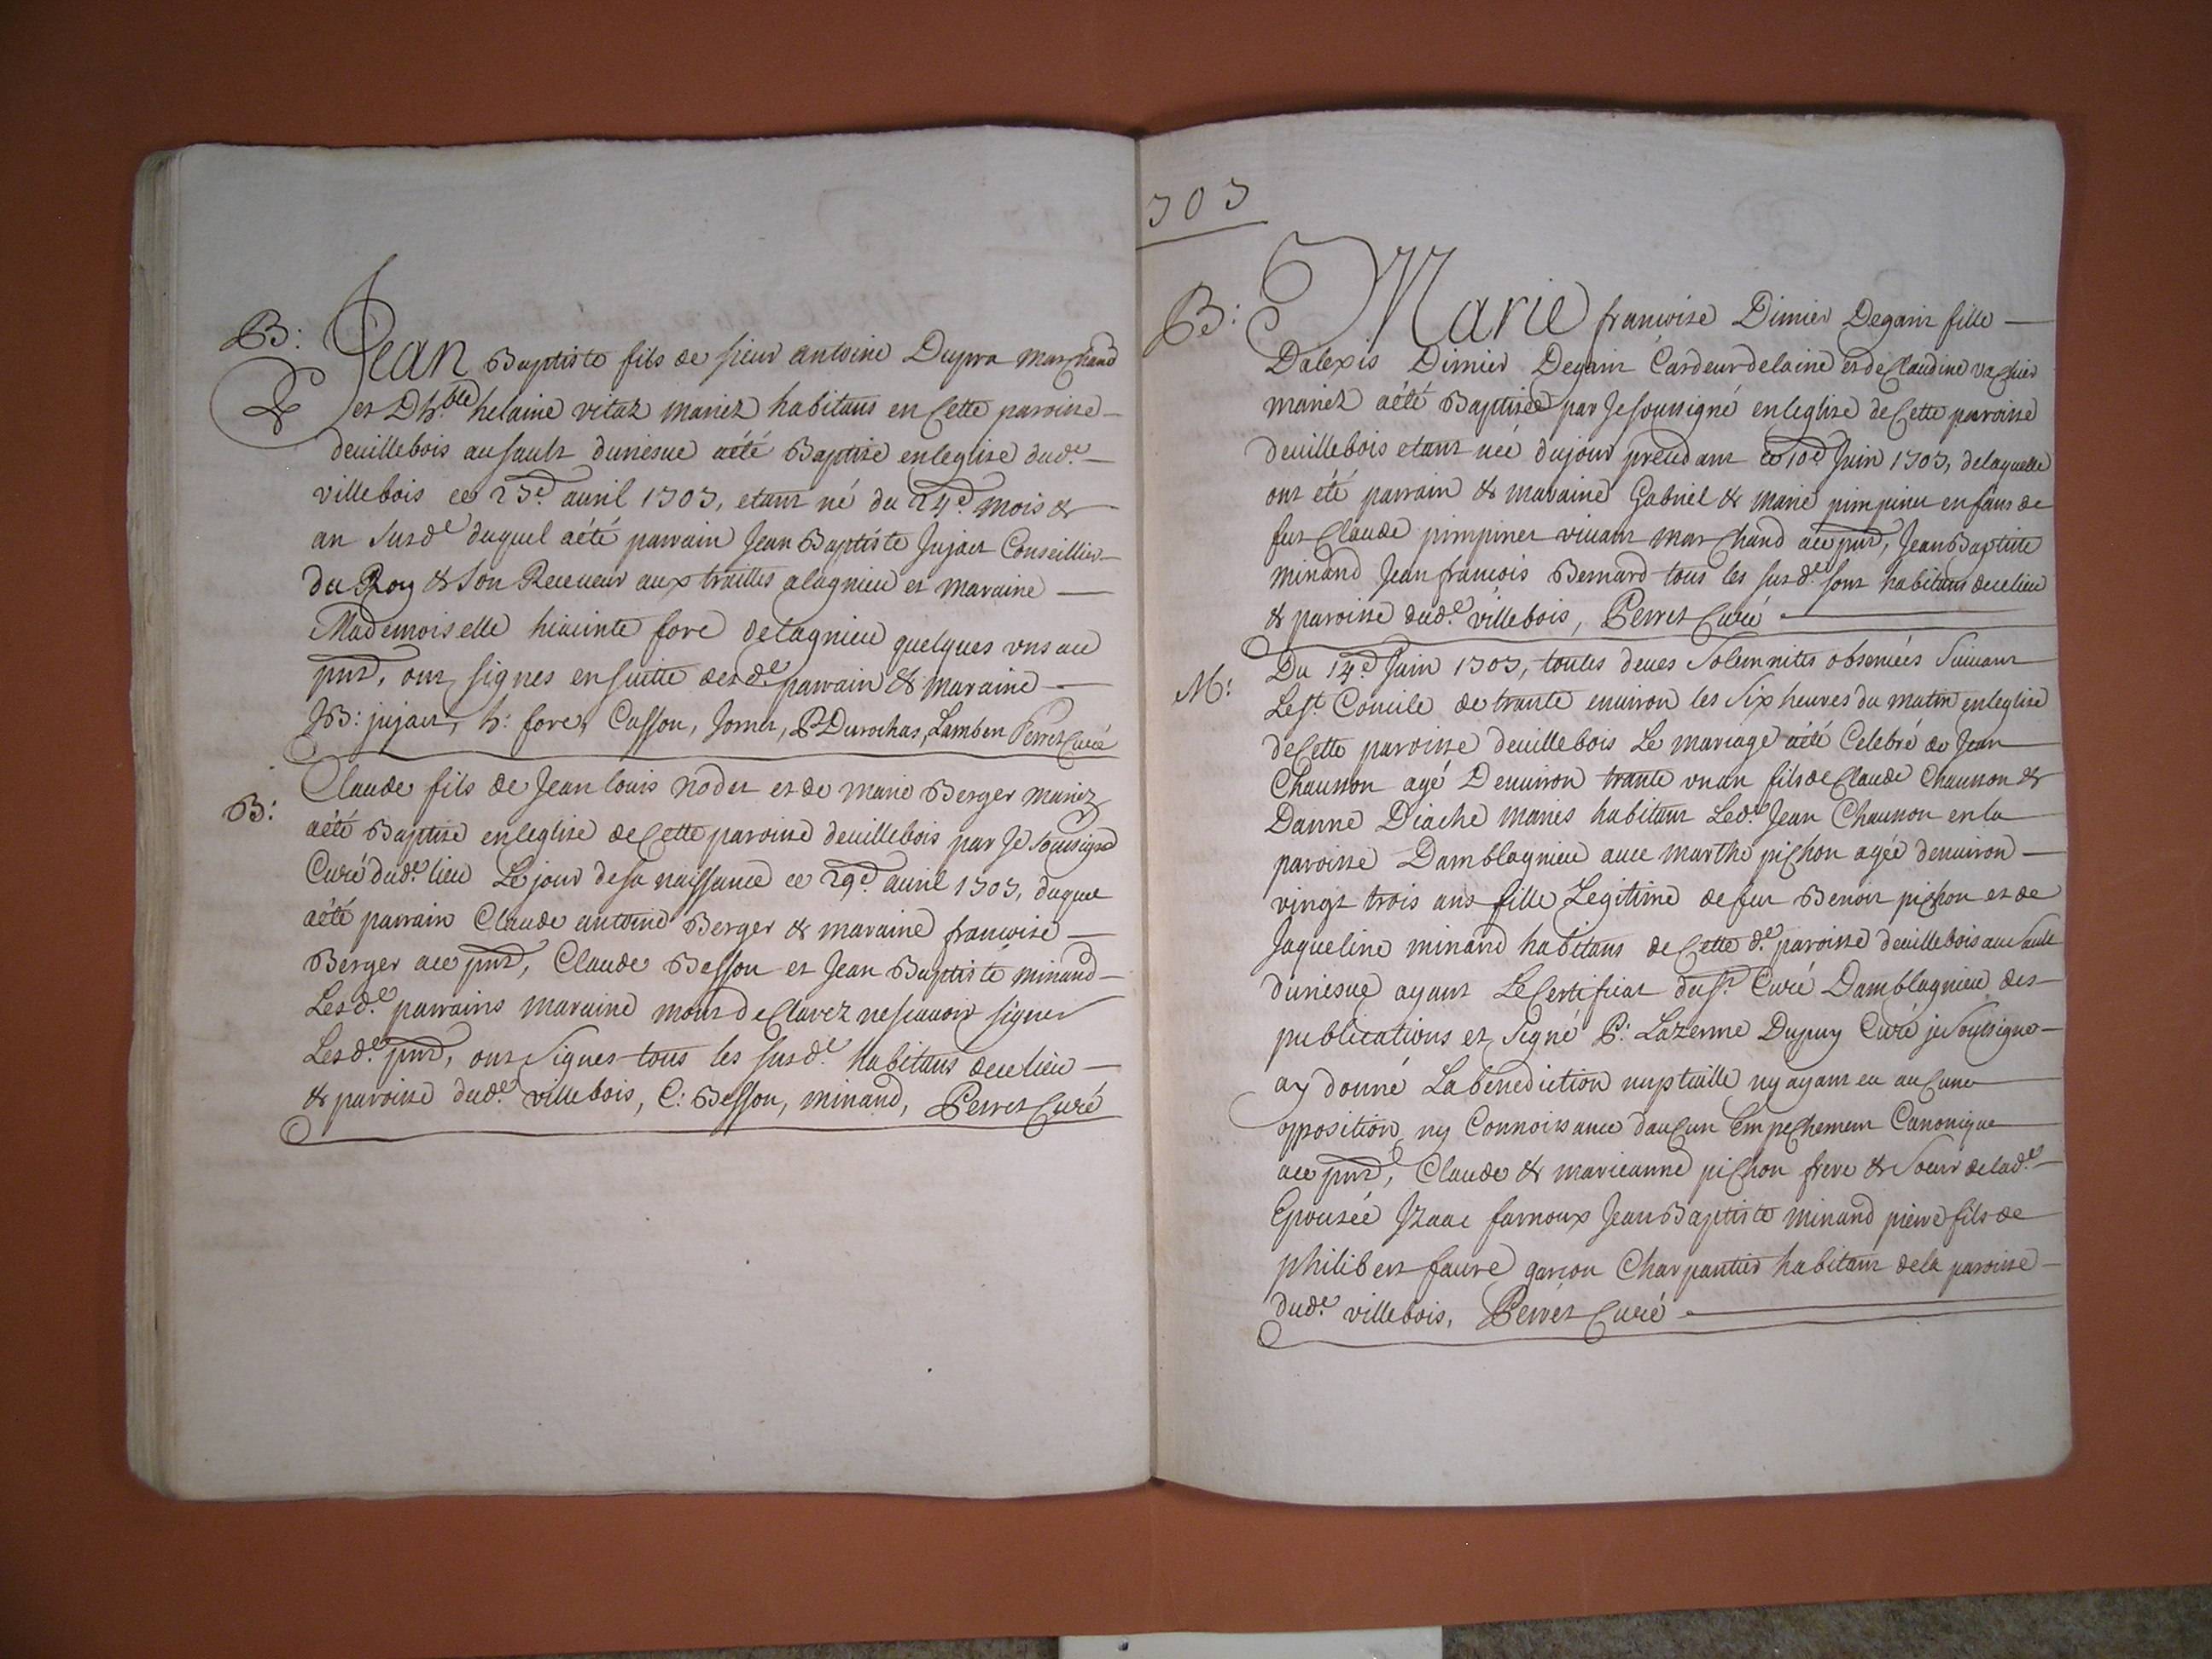 B: Jean Baptiste fils de sieur antoine Dupra marchand
& et Dh.ble helaine vitaz mariez habitans en Cette paroisse
deuillebois au sault dunieque aété Baptisé enleglise dud.e
villebois ce 25.e auril 1703, etant né du 24.e mois &
an susd.e duquel aété parrain Jean Baptiste Jujat Conseillier
du Roy & son Receueur aux traittes alagnieu et maraine
Mademoiselle hiacinte fore delagnieu quelques vns au
pnt, ont signes ensuitte desd.e parrain & maraine
JB: jujat, h: fore, Casson, Jornet, P Durochas, Lambert Perret Curé
B: Claude fils de Jean louis nodet et de marie Berger mariez
aété Baptisé enleglise deCette paroisse deuillebois par Je sousigné
Curé dud.e lieu Le jour desa naissance ce 29.e auril 1703, duquel
aété parrain Claude antoine Berger & maraine francoise
Berger ace pnt, Claude Besson et Jean Baptiste minand
Lesd.e parrains maraine mont deClarez nescauoir signer
Lesd.e pnt, ont signes tous les susd.e habitans decelieu
& paroisse dud.e villebois, C: Besson, minand, Perret Curé
303
B: Marie francoise Dimier Degain fille
Dalexis Dimier Degain Cardeurdelaine et deClaudine vachier
mariez aété Baptiseé par Jesousigné enleglise deCette paroisse
deuillebois etant neé dujour precedant ce 10.e Juin 1703, delaquelle
ont été parrain & maraine Gabriel & marie pimpinet enfans de
fut Claude pimpinet viuant marchand ace pnt, Jean Baptiste
minand Jean francois Bernard tous les susd.e sont habitans decelieu
& paroisse dud.e villebois, Perret Curé
M: Du 14.e Juin 1703, toutes deues Solemnites obseruées Suiuant
Le st. Concile de trante enuiron les six heures du matin enleglise
deCette paroisse deuillebois Le mariage aété Celebré de Jean
Chausson agé Denuiron trante vn an fils de Claude Chausson &
Danne Diache mariés habitant Led.e Jean Chausson enla
paroisse Damblagnieu auec marthe pichon agée denuiron
vingt trois ans fille Legitime defut Benoit pichon et de
Jaqueline minand habitans deCette d.e paroisse deuillebois au sault
dunieque ayant LeCertificat du sr. Curé Damblagnieu des
publications et signé P: Lazenne Dupuy Curé je sousigne
ay donné La benediction nuptialle ny ayant eu auCune
opposition, ny Connoissance dauCun Empechement Canonique
ace pnt, Claude & marieanne pichon frere & soeur delad.e
Epousée Izaac farnoux Jean Baptiste minand pierre fils de
philibert faure garcon Charpantier habitant dela paroisse
dud.e villebois, Perret Curé